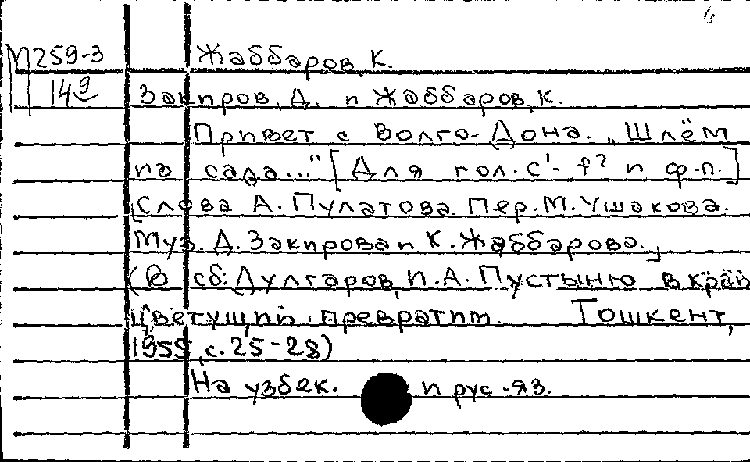 6
М259-3 Жаббаров, К.
149 Закиров, Д. и Жаббаров, К.
Привет с Волго-Дона. „Шлём
на сада..." [Для гол. c¹-f² и ф-п.]
[Слова А. Пулатова. Пер. М. Ушакова.
Муз. Д. Закирова и К. Жаббарова.]
(В сб: Дулгаров, И.А. Пустыню в край
цветущий превратит. Тошкент,
1955, с. 25-28)
На узбек. и рус. яз.